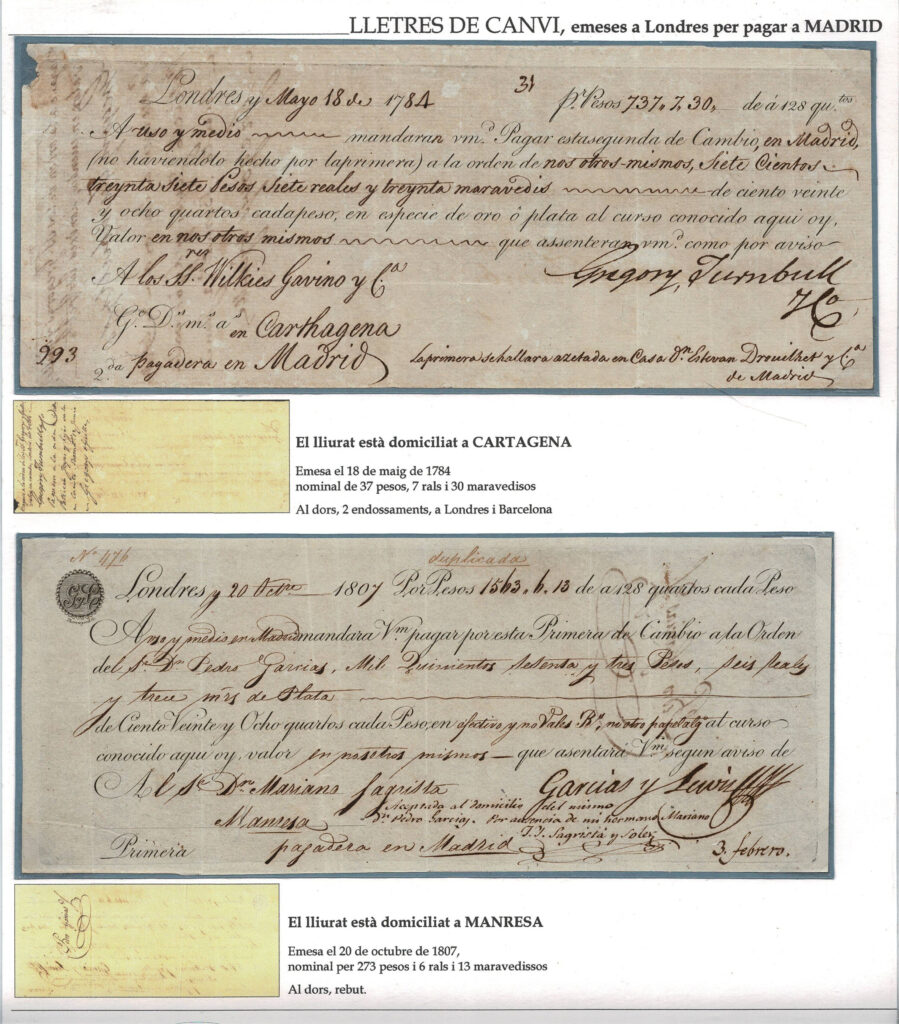 LLETRES DE CANVI, emeses a Londres per pagar a MADRID
31
Londres y Mayo 18 de 1784 pr. Pesos 737,, 7,, 30,, de á 128 qu.tos
A uso y medio mandaran vm.d Pagar estasegunda de Cambio, en Madrid,
(no haviendolo hecho por laprimera) a la orden de nos otros mismos, Siete Cientos
treynta siete Pesos Siete reales y treynta maravedis de ciento veinte
y ocho quartos cadapeso, en especie de oro ô plata al curso conocido aqui oy,
Valor en nos otros mismos que assenteran vm.d como por aviso
A los SS.res Wilkies Gavino y C.a Gregory, Turnbull
& Co
G.e D.n m.s a.s en Carthagena
993 2.da pagadera en Madrid la primera sehallara azetada en Casa Dn. Estevan Drouilhet y C.a
de Madrid
El lliurat està domiciliat a CARTAGENA
Emesa el 18 de maig de 1784
nominal de 37 pesos, 7 rals i 30 maravedisos
Al dors, 2 endossaments, a Londres i Barcelona
No. 476 duplicada
Londres y 20 Octre 1807 Por Pesos 1563,, 6,, 13 de a 128 quartos cada Peso
A uso y medio en Madrid mandara Vm. pagar por esta Primera de Cambio a la Orden
del Sr. Dn. Pedro Garcias, Mil Quinientos Sesenta y tres Pesos, seis Reales
y trece mrs de Plata
de Ciento Veinte y Ocho quartos cada Peso, en efectivo y no Vales Rs. ni otro papel al curso
conocido aqui oy, valor en nosotros mismos que asentara Vm. segun aviso de
Al Sr. Dn. Mariano Sagrista Garcias y Lewis
Aceptada al domicilio del mismo
Dn. Pedro Garcias. Por ausencia de mi hermano Mariano
Manresa J. J. Sagristá y Soler
Primera pagadera en Madrid 3. febrero.
El lliurat està domiciliat a MANRESA
Emesa el 20 de octubre de 1807,
nominal per 273 pesos i 6 rals i 13 maravedissos
Al dors, rebut.